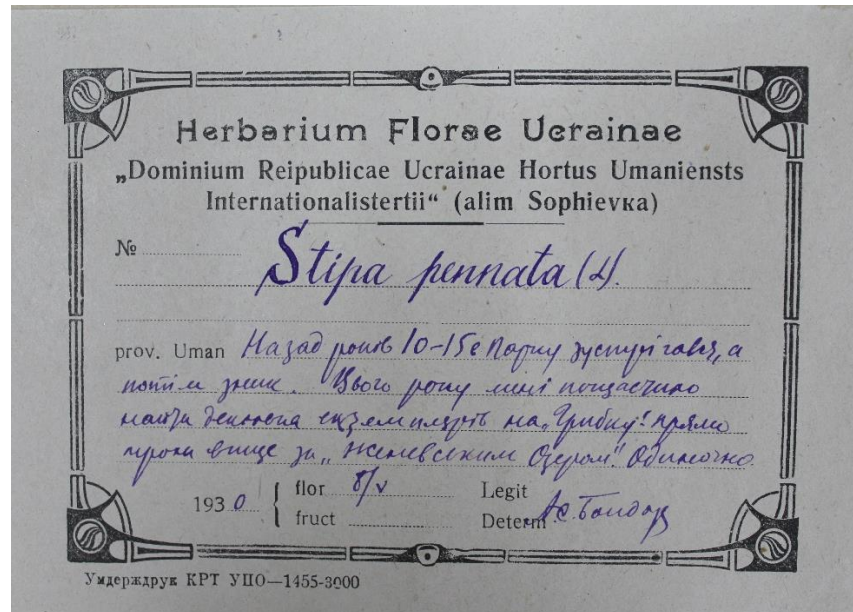 Herbarium Florae Ucrainae
„Dominium Reipublicae Ucrainae Hortus Umaniensts
Internationalistertii“ (alim Sophievка)
№ Stipa pennata (L).
prov. Uman Назад років 10-15 в парку зустрігався, а
потім зник. Цього року мені пощастило
найти декілька екземплярів на „Грибку“. прямо
трохи вище за „Женевським Озером“. Одиночно.
1930 { flor 8/V Legit
fruct Determ Ас. Бондар
Умдерждрук КРТ УПО—1455-3000